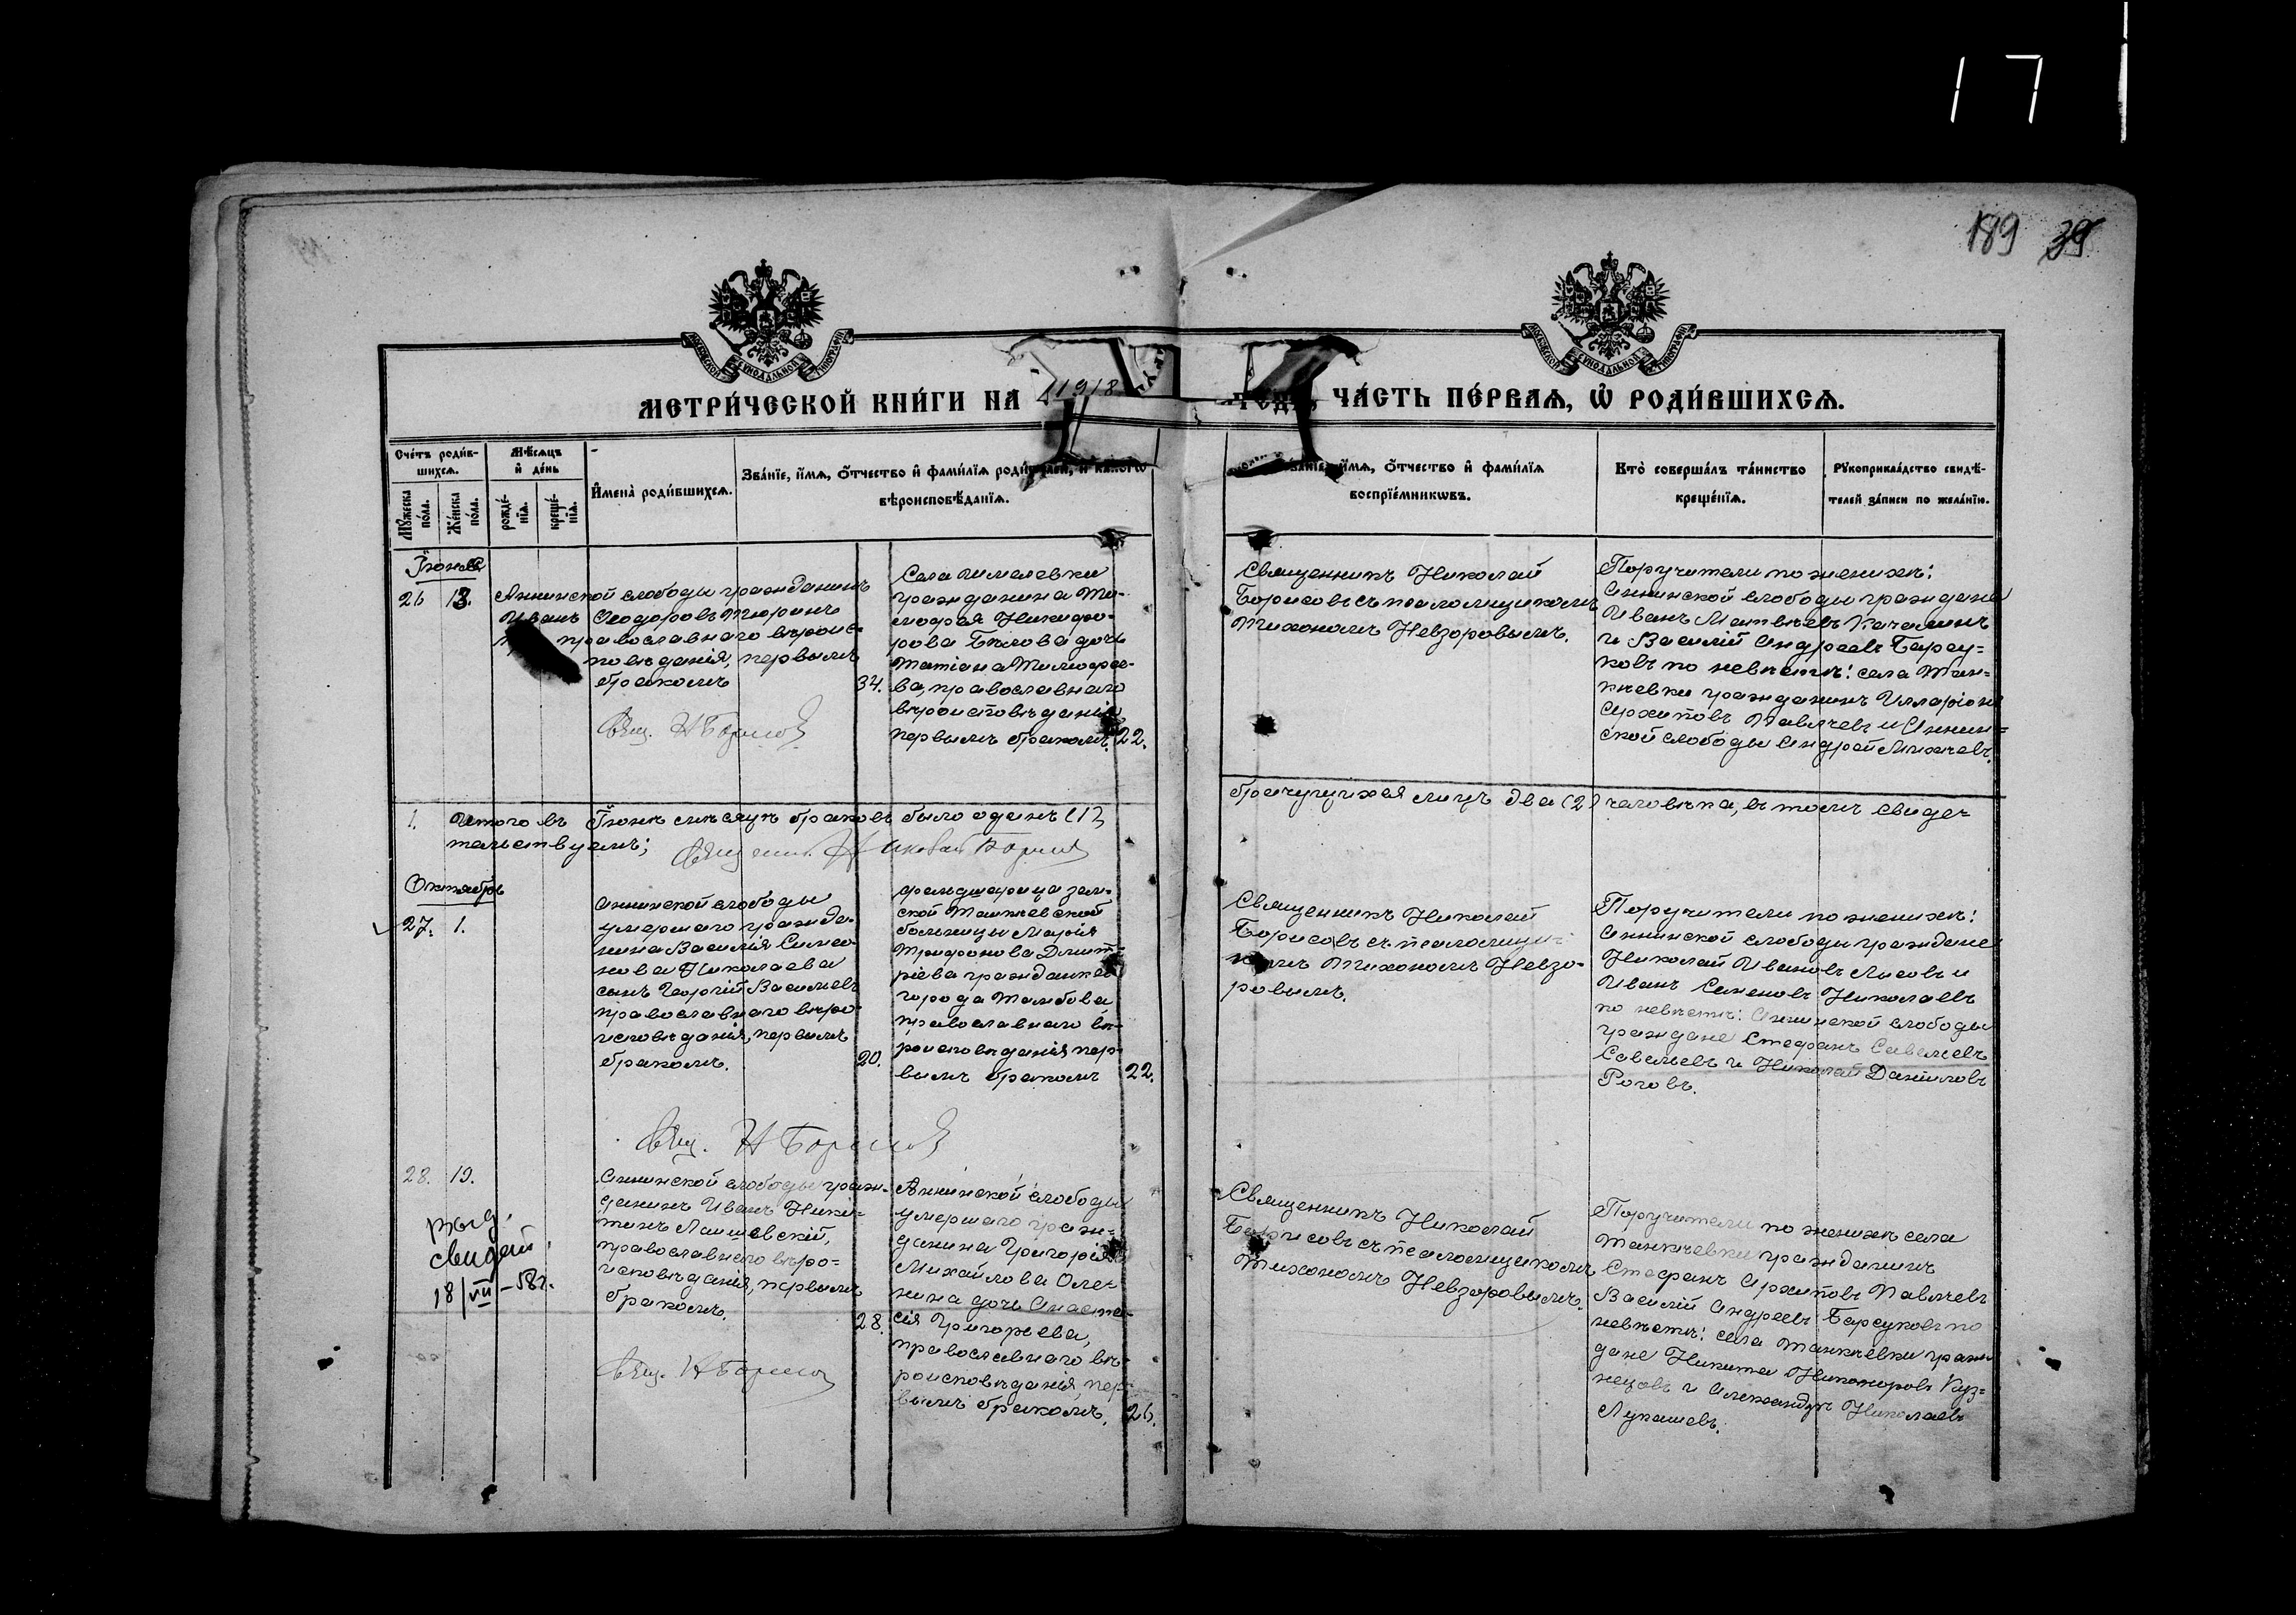 17
189 39
МОСКОВСКОЙ СУНОДАЛЬНОЙ ТИПОГРАФІИ
МОСКОВСКОЙ СУНОДАЛЬНОЙ ТИПОГРАФІИ
МЕТРИ́ЧЕСКОЙ КНИ́ГИ НА 1918
ЧА́СТЬ ПЕ́РВАѦ, Ѡ РОДИ́ВШИХСѦ.
Сче́тъ роди́в-
шихсѧ.
Мѣ́сѧцъ
и҆ де́нь
Му́жеска по́ла.
Же́нска по́ла.
рожде́-
нїѧ.
креще́-
нїѧ.
И҆мена̀ роди́вшихсѧ.
Зва́нїе, и҆́мѧ, ѻ҆́тчество и҆ фами́лїѧ роди́телей, и҆ како́гѡ
вѣроисповѣ́данїѧ.
Зва́нїе, и҆́мѧ, ѻ҆́тчество и҆ фами́лїѧ
воспрїе́мникѡвъ.
Кто̀ соверша́лъ та́инство
креще́нїѧ.
Рꙋкоприкла́дство свидѣ́-
телей за́писи по жела́нїю.
Іюнь
26 13.
Аннинской слободы гражданинъ
Иванъ Ѳеодоровъ Тюринъ
православнаго вѣроис-
повѣданія, первымъ
бракомъ 34.
Свящ. Н Борисов
Села
гражданина Ти-
моѳея Никифо-
рова Бѣлова дочь
Татіана Тимоѳее-
ва, православнаго
вѣроисповѣданія
первымъ бракомъ. 22.
Священникъ Николай
Борисовъ съ псаломщикомъ
Тихономъ Невзоровымъ.
Поручители по женихѣ:
Аннинской слободы граждане
Иванъ Матвѣевъ Качалинъ
и Василій Андреевъ Барсу-
ковъ по невѣстѣ: села Тан-
кѣевки гражданинъ Илларіонъ
Архиповъ Павлычевъ и Аннин-
ской слободы Андрей Михеевъ.
1. Итого въ Іюнѣ мѣсяцѣ браковъ было одинъ (1)
брачущихся лицъ два (2) человѣка, въ томъ свидѣ-
тельствуемъ; Священ. Николай Борисов
Октябрь
27. 1.
Аннинской слободы
умершаго гражда-
нина Василія Симео-
нова Николаева
сынъ Георгій Васильевъ
православнаго вѣро-
исповѣданія, первымъ
бракомъ. 20.
Свящ. Н Борисов
фельдшерица зем-
ской Танкѣевской
больницы Марія
Трифонова Дмит-
ріева гражданка
города Тамбова
православнаго вѣ-
роисповѣданія пер-
вымъ бракомъ 22.
Священникъ Николай
Борисовъ съ псаломщи-
комъ Тихономъ Невзо-
ровымъ.
Поручители по женихѣ:
Аннинской слободы граждане
Николай Ивановъ Лисовъ и
Иванъ Семеновъ Николаевъ
по невѣстѣ: Аннинской слободы
граждане Стефанъ Савельевъ
Савельевъ и Николай Даниловъ
Роговъ.
28. 19.
Выд.
свидет.
18/VII-58г.
Аннинской слободы граж-
данинъ Иванъ Ники-
тинъ Лаишевскій,
православнаго вѣро-
исповѣданія, первымъ
бракомъ. 28.
Свящ. Н Борисов
Аннинской слободы
умершаго граж-
данина Григорія
Михайлова Оле-
нина дочь Анаста-
сія Григорьева,
православнаго вѣ-
роисповѣданія, пер-
вымъ бракомъ. 26.
Священникъ Николай
Борисовъ съ псаломщикомъ
Тихономъ Невзоровымъ.
Поручители по женихѣ села
Танкѣевки гражданинъ
Стефанъ Архиповъ Павлычевъ
Василій Андреевъ Барсуковъ по
невѣстѣ: села Танкѣевки граж-
дане Никита Никоноровъ Куз-
нецовъ и Александръ Николаевъ
Лукашевъ.